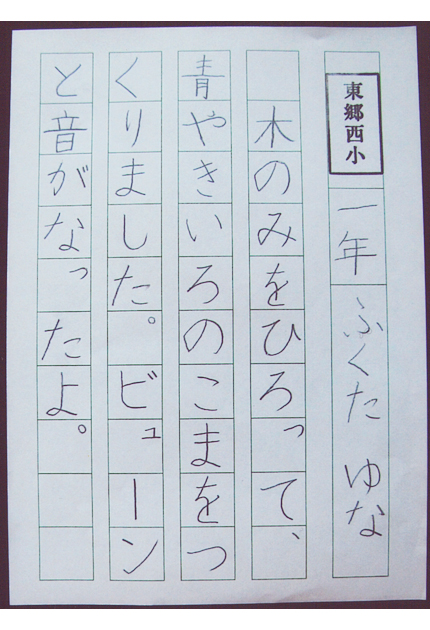 東郷西小 一年 ふくた ゆな
木のみをひろって、
青やきいろのこまをつ
くりました。ビューン
と音がなったよ。